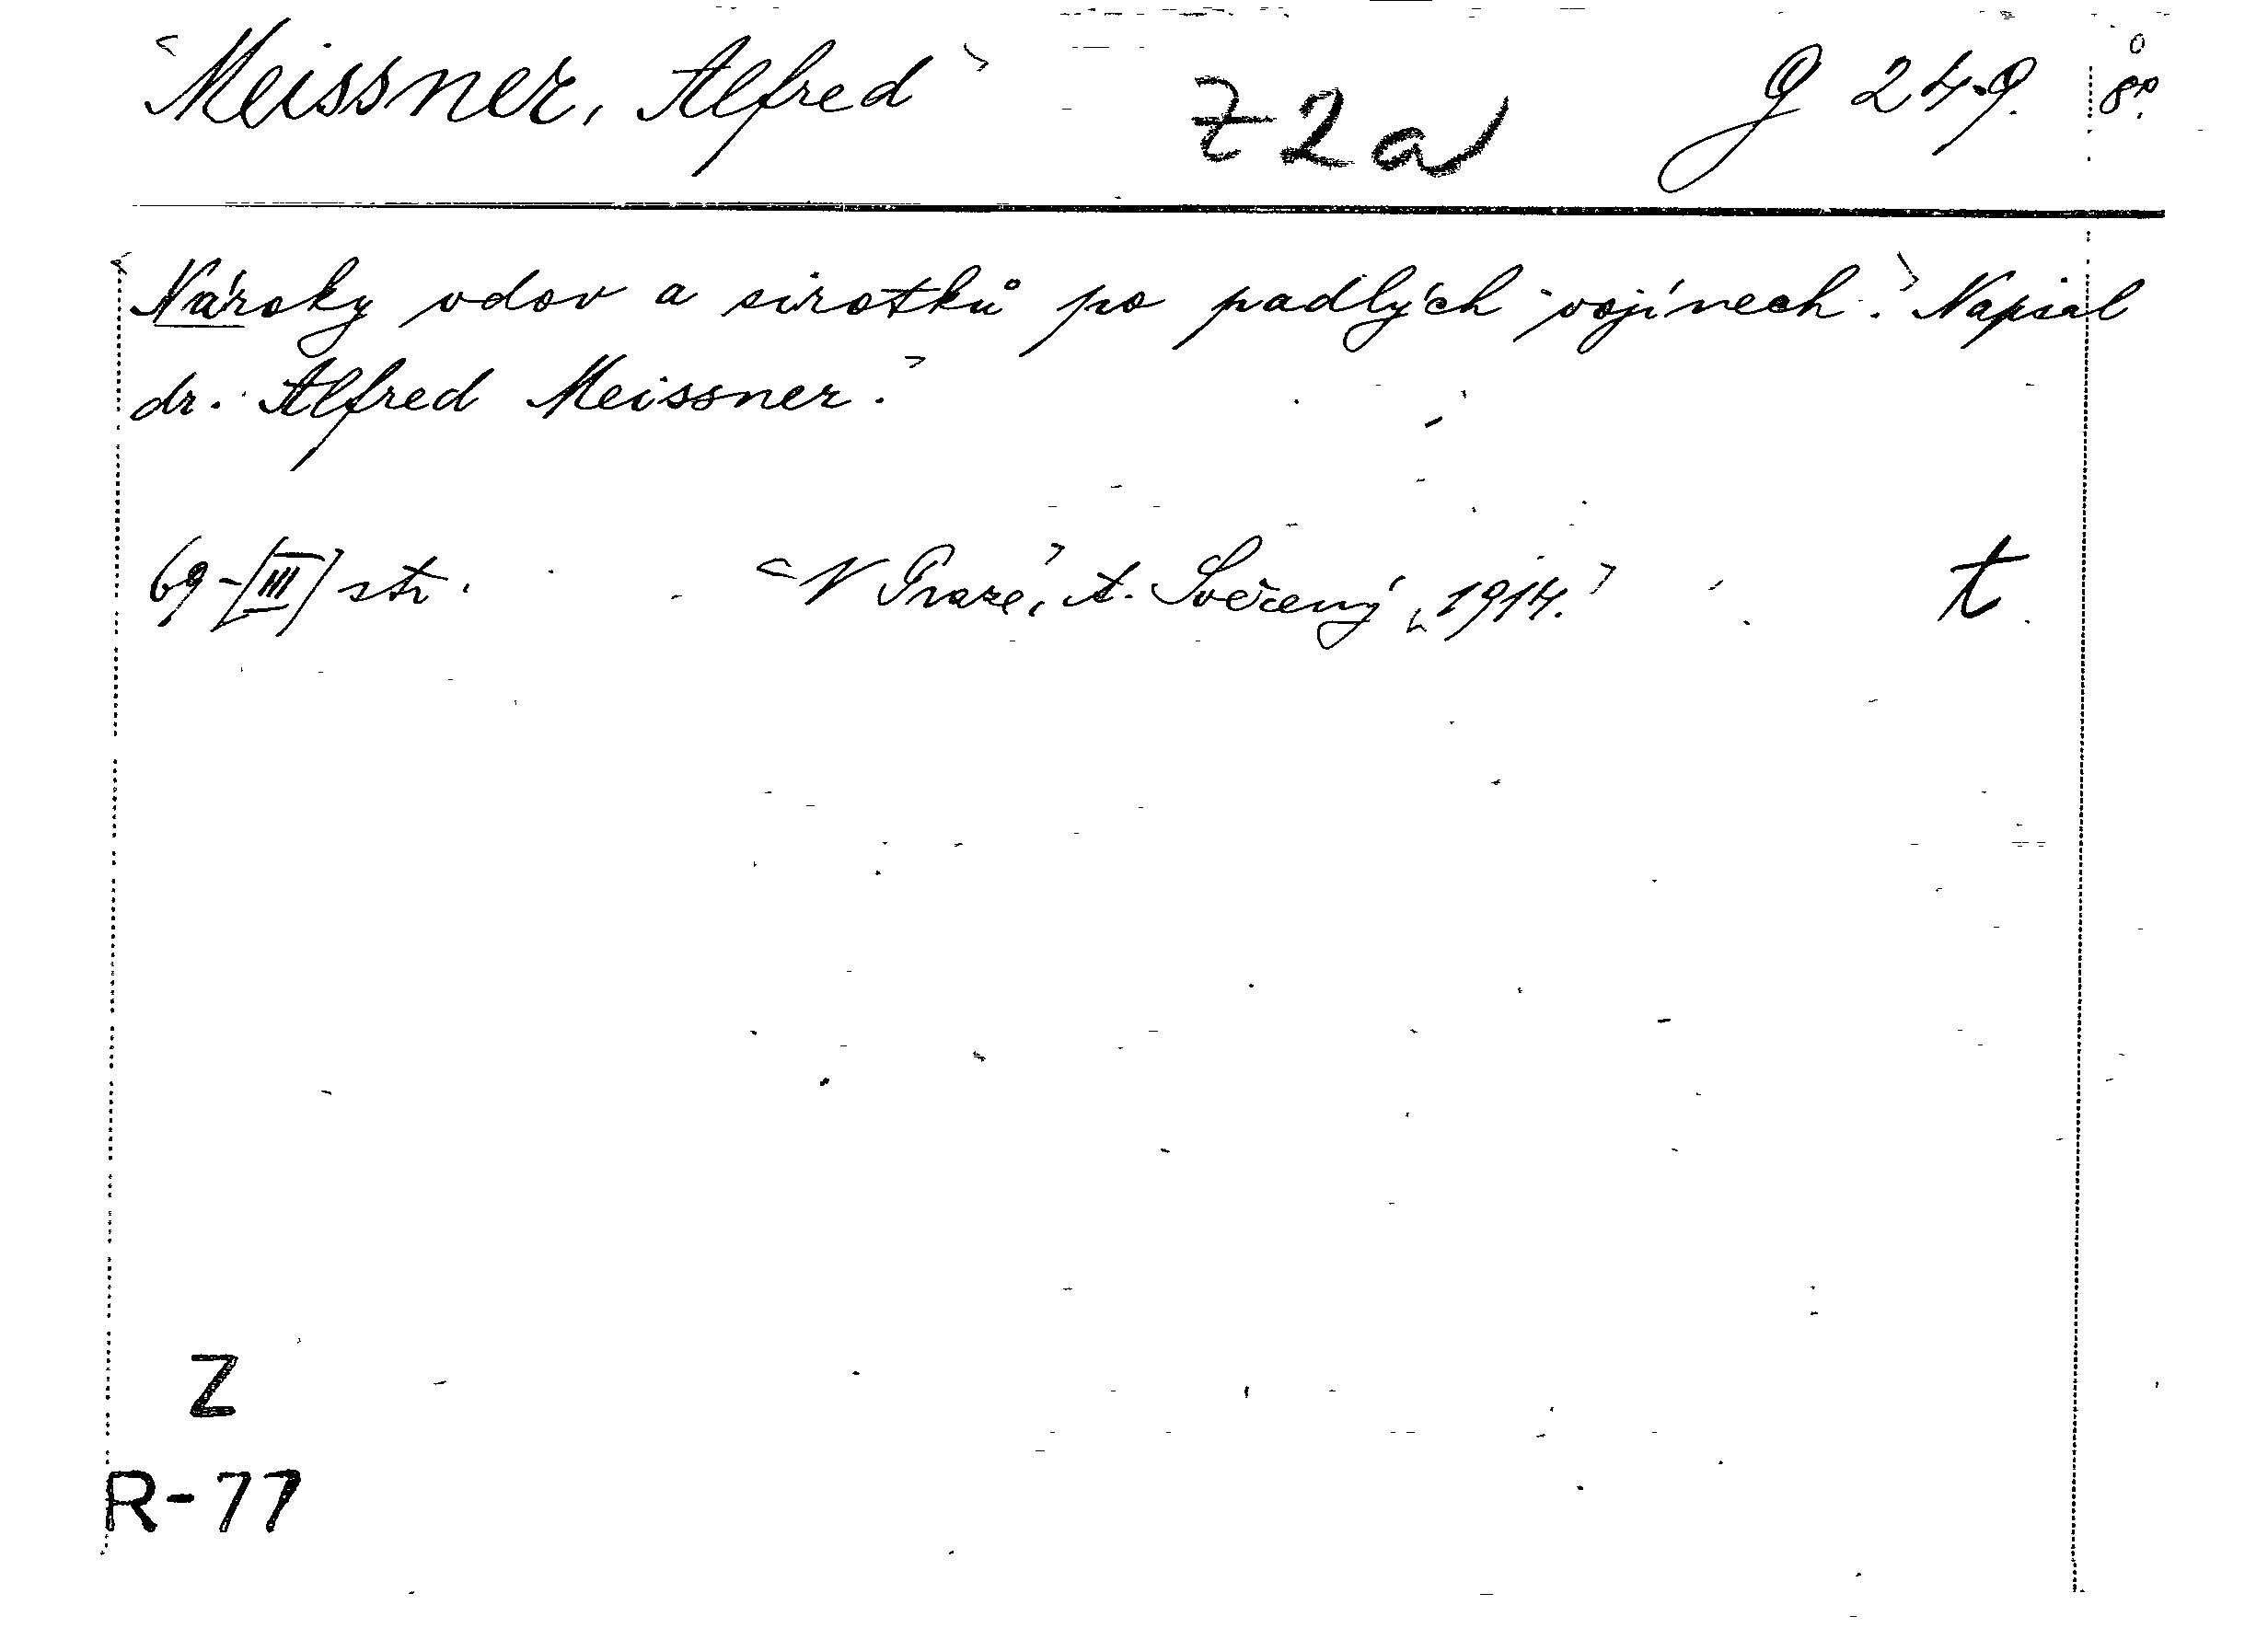 Meissner, Alfred Z 2a g 249. 8°
Nároky vdov a sirotků po padlých vojínech. Napsal
dr. Alfred Meissner.
69-[III] str. V Praze, A. Svěcený, 1914. t
Z
R-77